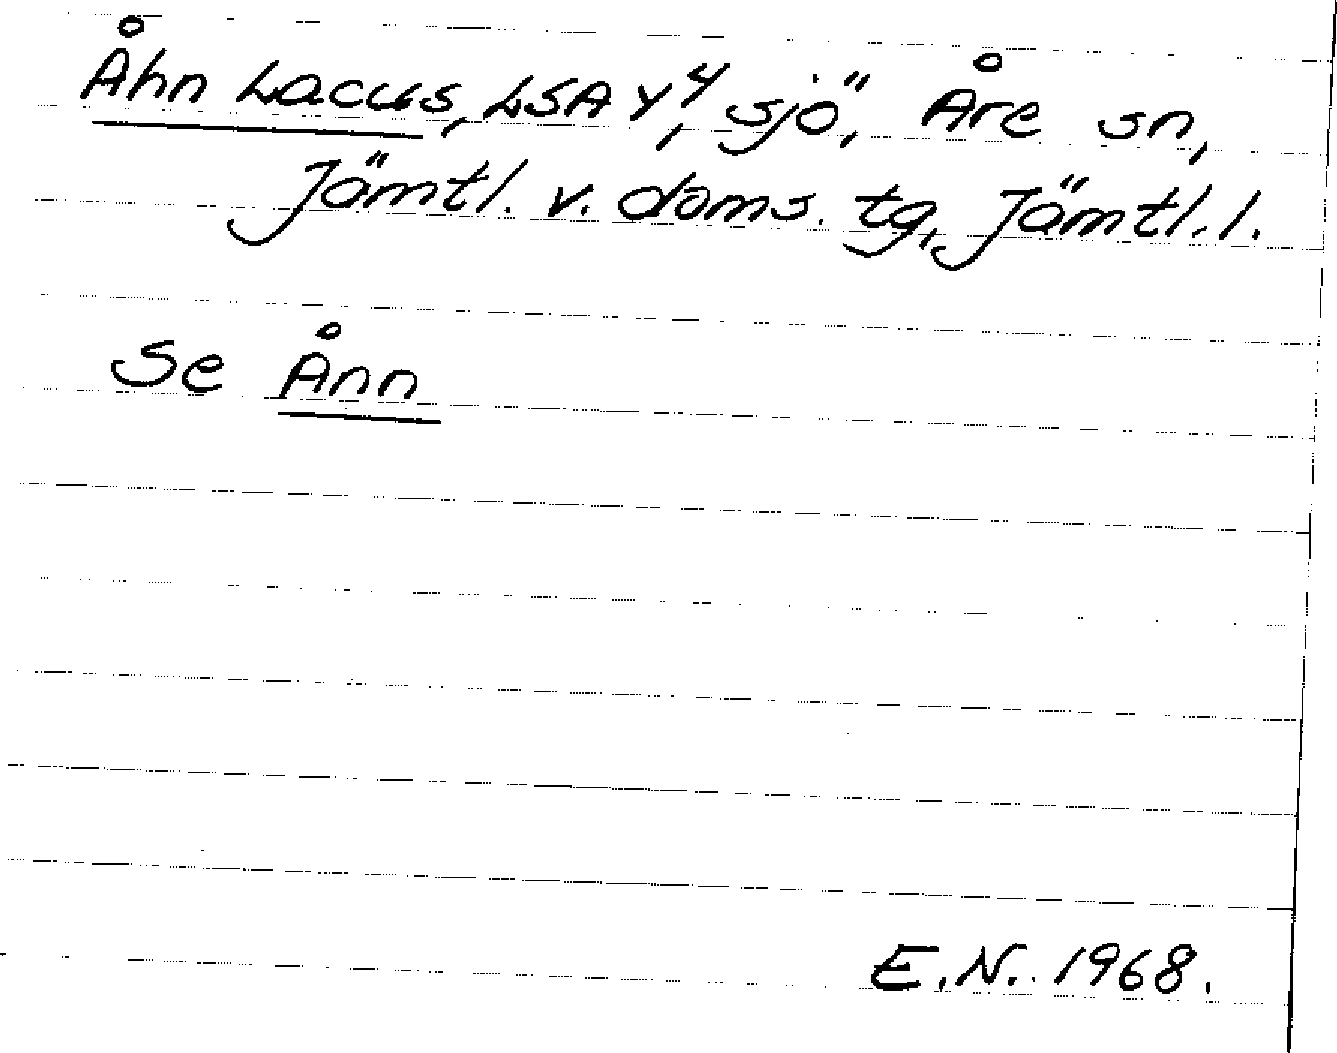 Åhn Lacus, LSA Y⁴, sjö, Åre sn,
Jämtl. v. doms. tg, Jämtl. l.
Se Ånn
E.N. 1968.